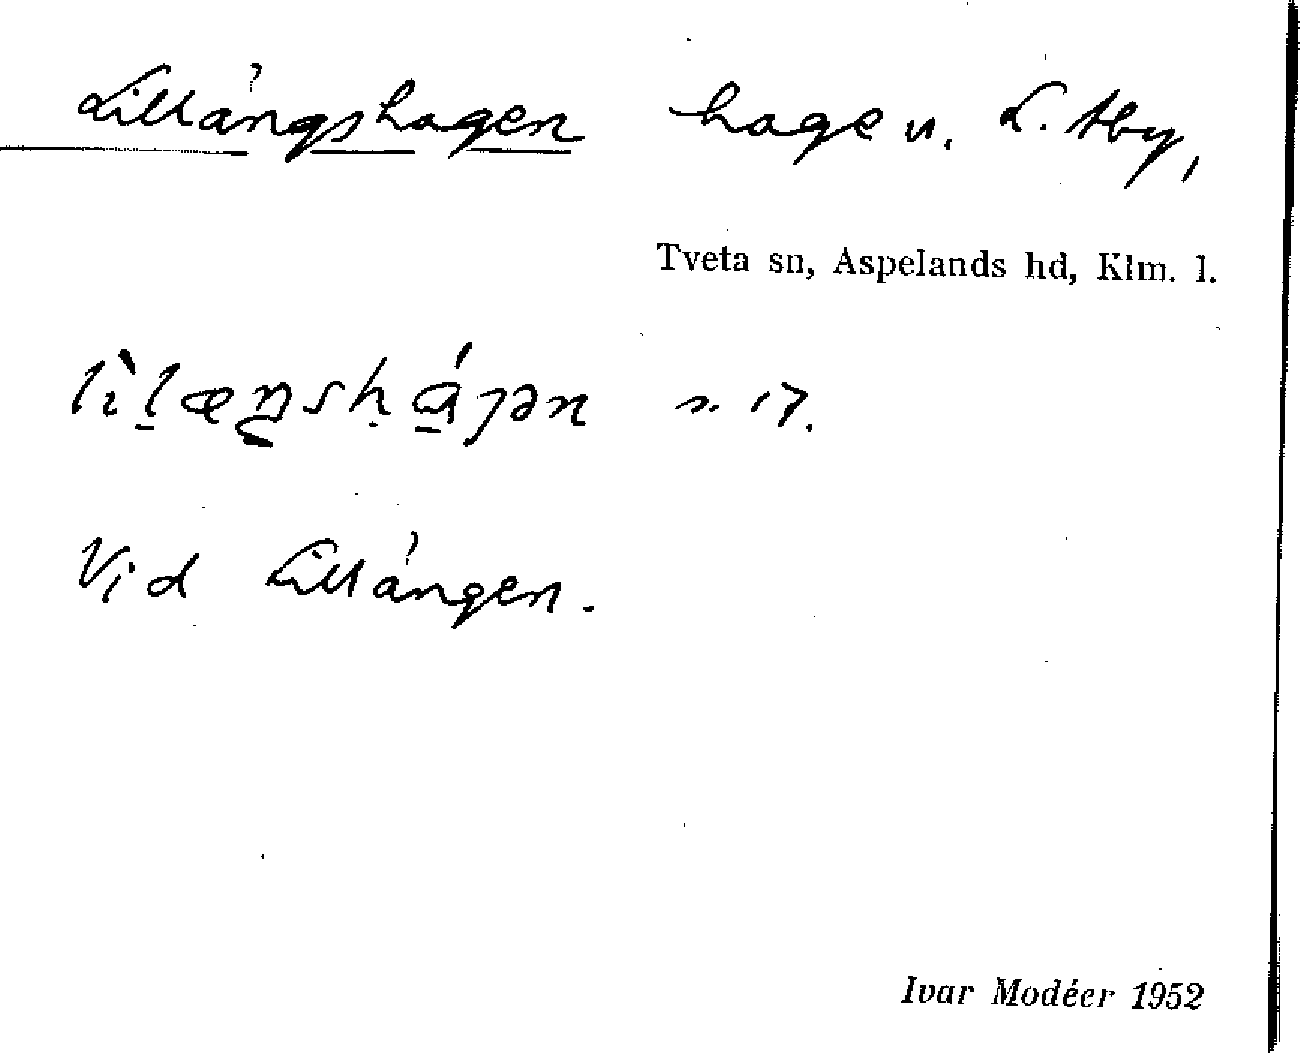 Lillängshagen hage u. L. Aby,
Tveta sn, Aspelands hd, Klm. l.
s. 17.
Vid Lillängen.
Ivar Modéer 1952